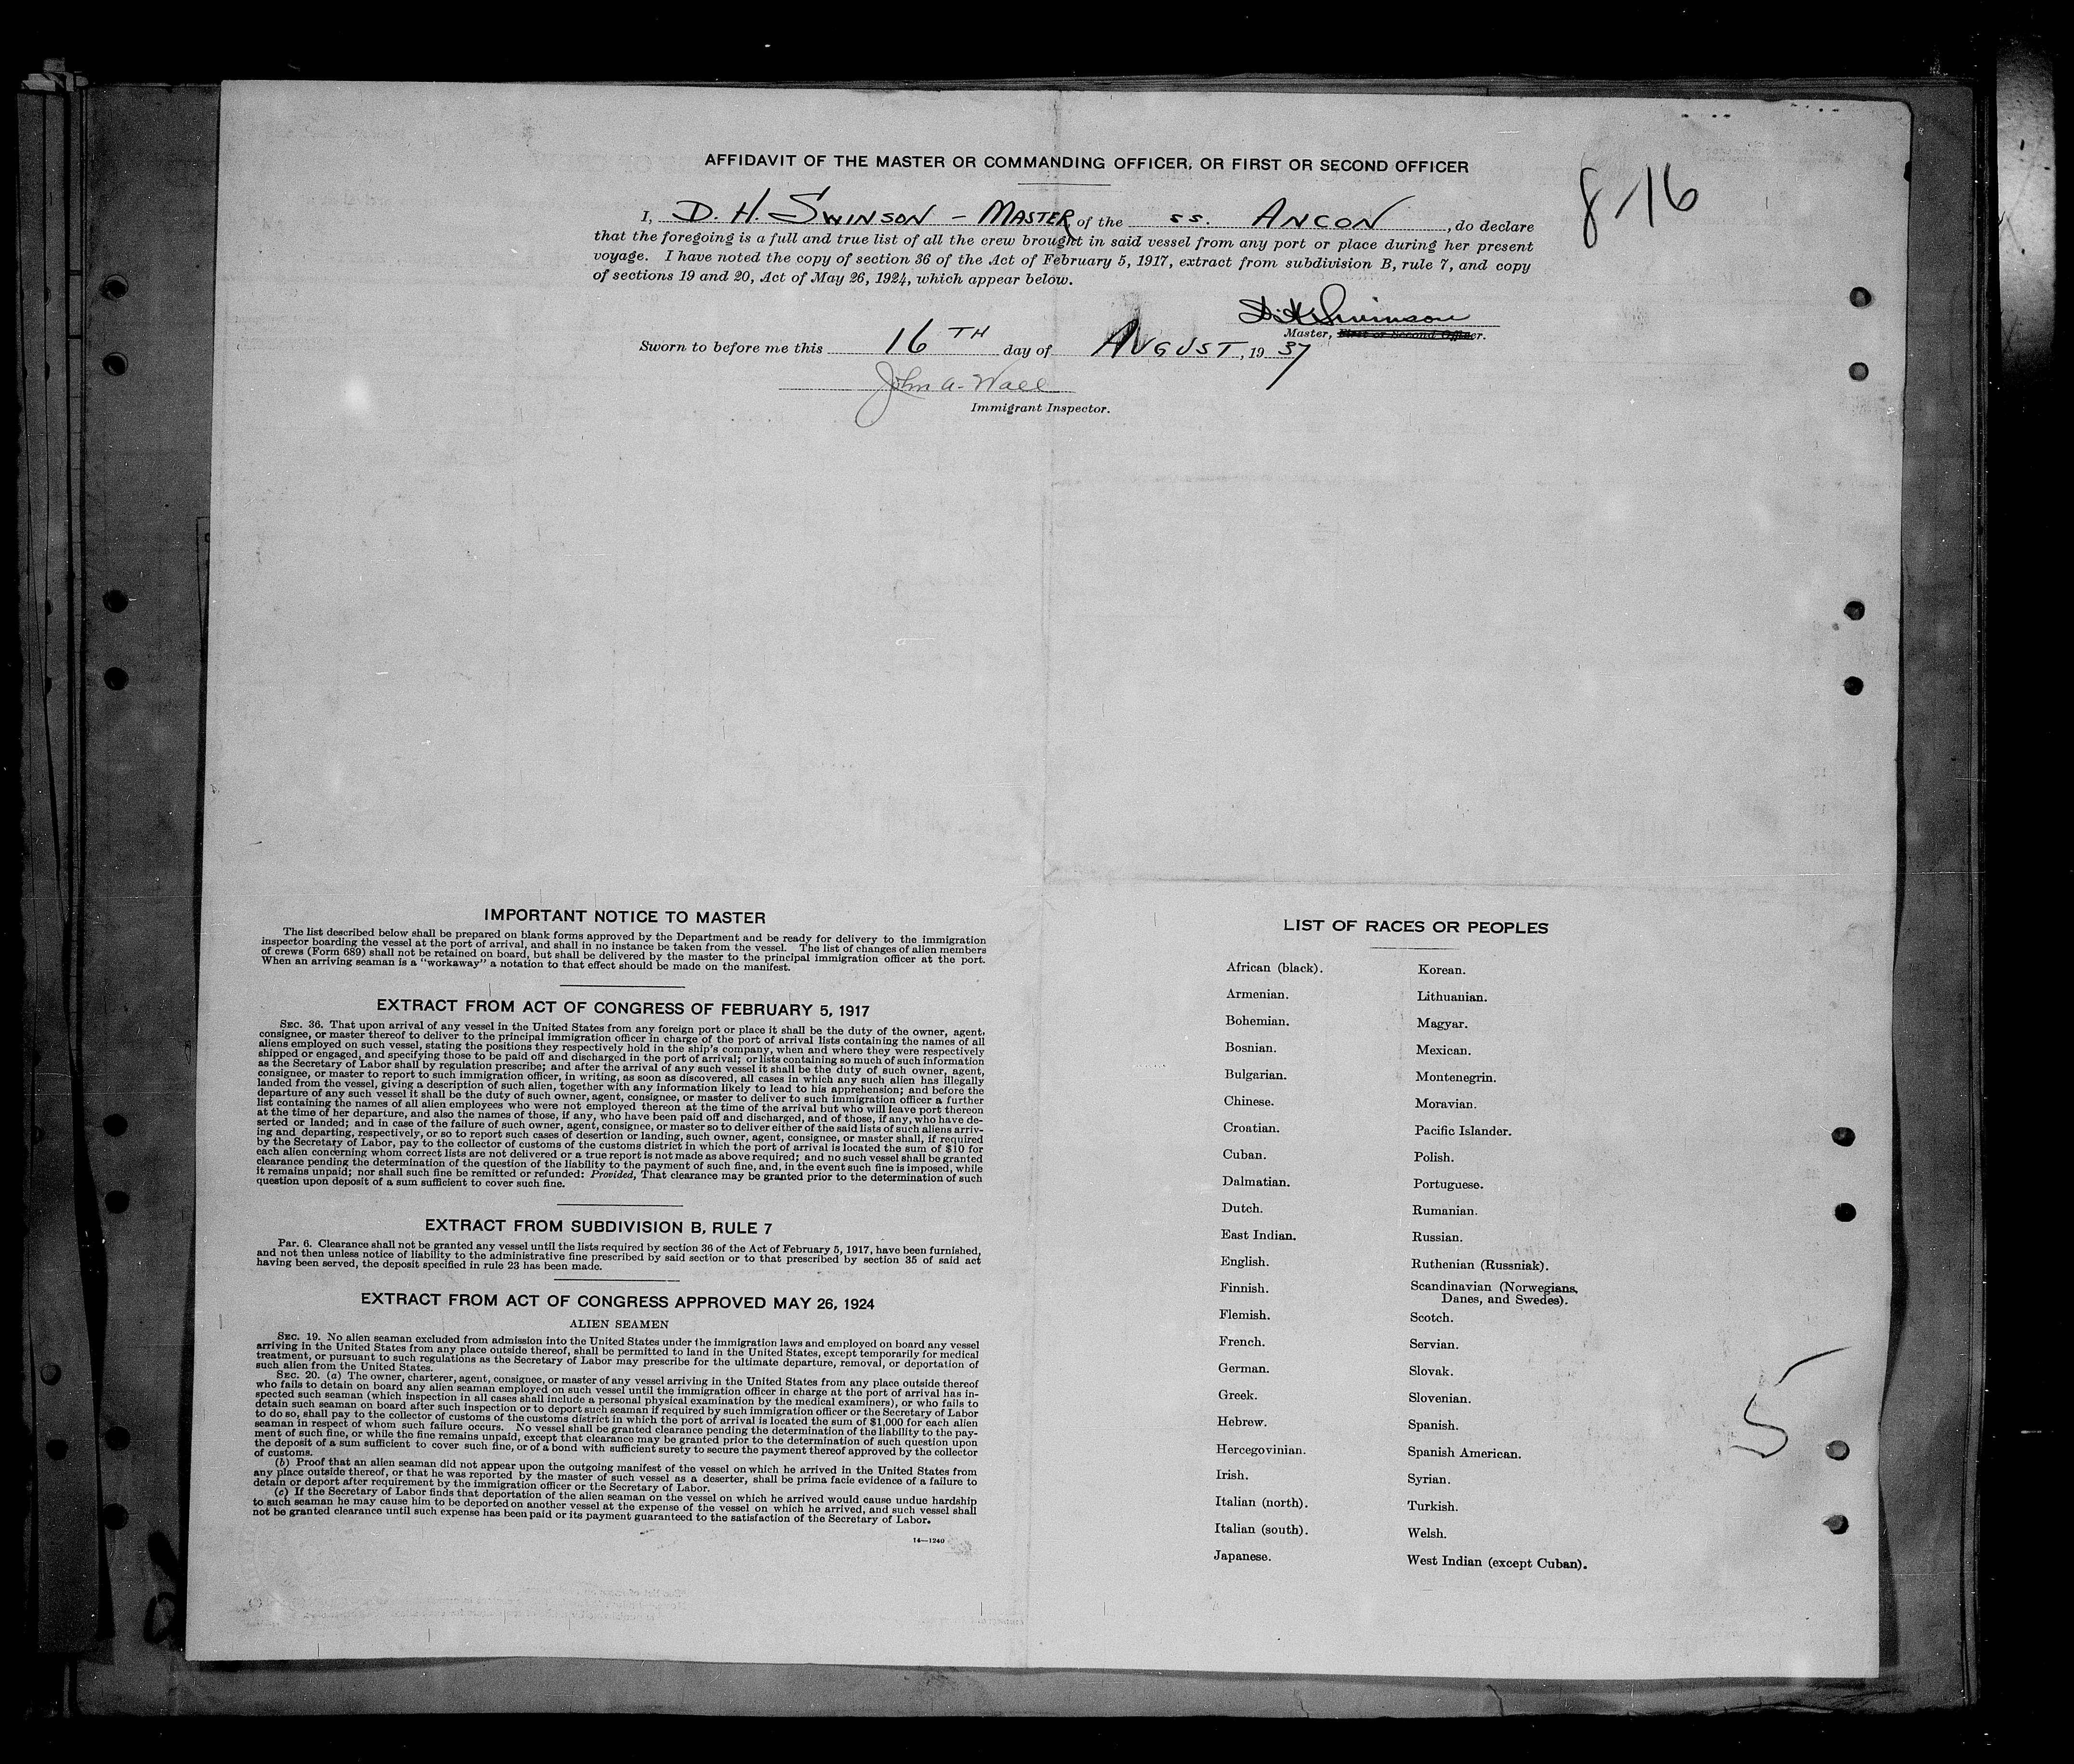 AFFIDAVIT OF THE MASTER OR COMMANDING OFFICER, OR FIRST OR SECOND OFFICER
8-16
I, D. H. SWINSON - MASTER, of the SS. ANCON, do declare
that the foregoing is a full and true list of all the crew brought in said vessel from any port or place during her present
voyage. I have noted the copy of section 36 of the Act of February 5, 1917, extract from subdivision B, rule 7, and copy
of sections 19 and 20, Act of May 26, 1924, which appear below.
D.H. Swinson
Master, First or Second Officer.
Sworn to before me this 16TH day of AUGUST, 19 37
John A. Wall
Immigrant Inspector.
IMPORTANT NOTICE TO MASTER
The list described below shall be prepared on blank forms approved by the Department and be ready for delivery to the immigration
inspector boarding the vessel at the port of arrival, and shall in no instance be taken from the vessel. The list of changes of alien members
of crews (Form 689) shall not be retained on board, but shall be delivered by the master to the principal immigration officer at the port.
When an arriving seaman is a "workaway" a notation to that effect should be made on the manifest.
EXTRACT FROM ACT OF CONGRESS OF FEBRUARY 5, 1917
SEC. 36. That upon arrival of any vessel in the United States from any foreign port or place it shall be the duty of the owner, agent,
consignee, or master thereof to deliver to the principal immigration officer in charge of the port of arrival lists containing the names of all
aliens employed on such vessel, stating the positions they respectively hold in the ship's company, when and where they were respectively
shipped or engaged, and specifying those to be paid off and discharged in the port of arrival; or lists containing so much of such information
as the Secretary of Labor shall by regulation prescribe; and after the arrival of any such vessel it shall be the duty of such owner, agent,
consignee, or master to report to such immigration officer, in writing, as soon as discovered, all cases in which any such alien has illegally
landed from the vessel, giving a description of such alien, together with any information likely to lead to his apprehension; and before the
departure of any such vessel it shall be the duty of such owner, agent, consignee, or master to deliver to such immigration officer a further
list containing the names of all alien employees who were not employed thereon at the time of the arrival but who will leave port thereon
at the time of her departure, and also the names of those, if any, who have been paid off and discharged, and of those, if any, who have de-
serted or landed; and in case of the failure of such owner, agent, consignee, or master so to deliver either of the said lists of such aliens arriv-
ing and departing, respectively, or so to report such cases of desertion or landing, such owner, agent, consignee, or master shall, if required
by the Secretary of Labor, pay to the collector of customs of the customs district in which the port of arrival is located the sum of $10 for
each alien concerning whom correct lists are not delivered or a true report is not made as above required; and no such vessel shall be granted
clearance pending the determination of the question of the liability to the payment of such fine, and, in the event such fine is imposed, while
it remains unpaid; nor shall such fine be remitted or refunded: Provided, That clearance may be granted prior to the determination of such
question upon deposit of a sum sufficient to cover such fine.
EXTRACT FROM SUBDIVISION B, RULE 7
Par. 6. Clearance shall not be granted any vessel until the lists required by section 36 of the Act of February 5, 1917, have been furnished,
and not then unless notice of liability to the administrative fine prescribed by said section or to that prescribed by section 35 of said act
having been served, the deposit specified in rule 23 has been made.
EXTRACT FROM ACT OF CONGRESS APPROVED MAY 26, 1924
ALIEN SEAMEN
SEC. 19. No alien seaman excluded from admission into the United States under the immigration laws and employed on board any vessel
arriving in the United States from any place outside thereof, shall be permitted to land in the United States, except temporarily for medical
treatment, or pursuant to such regulations as the Secretary of Labor may prescribe for the ultimate departure, removal, or deportation of
such alien from the United States.
SEC. 20. (a) The owner, charterer, agent, consignee, or master of any vessel arriving in the United States from any place outside thereof
who fails to detain on board any alien seaman employed on such vessel until the immigration officer in charge at the port of arrival has in-
spected such seaman (which inspection in all cases shall include a personal physical examination by the medical examiners), or who fails to
detain such seaman on board after such inspection or to deport such seaman if required by such immigration officer or the Secretary of Labor
to do so, shall pay to the collector of customs of the customs district in which the port of arrival is located the sum of $1,000 for each alien
seaman in respect of whom such failure occurs. No vessel shall be granted clearance pending the determination of the liability to the pay-
ment of such fine, or while the fine remains unpaid, except that clearance may be granted prior to the determination of such question upon
the deposit of a sum sufficient to cover such fine, or of a bond with sufficient surety to secure the payment thereof approved by the collector
of customs.
(b) Proof that an alien seaman did not appear upon the outgoing manifest of the vessel on which he arrived in the United States from
any place outside thereof, or that he was reported by the master of such vessel as a deserter, shall be prima facie evidence of a failure to
detain or deport after requirement by the immigration officer or the Secretary of Labor.
(c) If the Secretary of Labor finds that deportation of the alien seaman on the vessel on which he arrived would cause undue hardship
to such seaman he may cause him to be deported on another vessel at the expense of the vessel on which he arrived, and such vessel shall
not be granted clearance until such expense has been paid or its payment guaranteed to the satisfaction of the Secretary of Labor.
14—1240
LIST OF RACES OR PEOPLES
African (black).
Armenian.
Bohemian.
Bosnian.
Bulgarian.
Chinese.
Croatian.
Cuban.
Dalmatian.
Dutch.
East Indian.
English.
Finnish.
Flemish.
French.
German.
Greek.
Hebrew.
Hercegovinian.
Irish.
Italian (north).
Italian (south).
Japanese.
Korean.
Lithuanian.
Magyar.
Mexican.
Montenegrin.
Moravian.
Pacific Islander.
Polish.
Portuguese.
Rumanian.
Russian.
Ruthenian (Russniak).
Scandinavian (Norwegians,
Danes, and Swedes).
Scotch.
Servian.
Slovak.
Slovenian.
Spanish.
Spanish American.
Syrian.
Turkish.
Welsh.
West Indian (except Cuban).
5